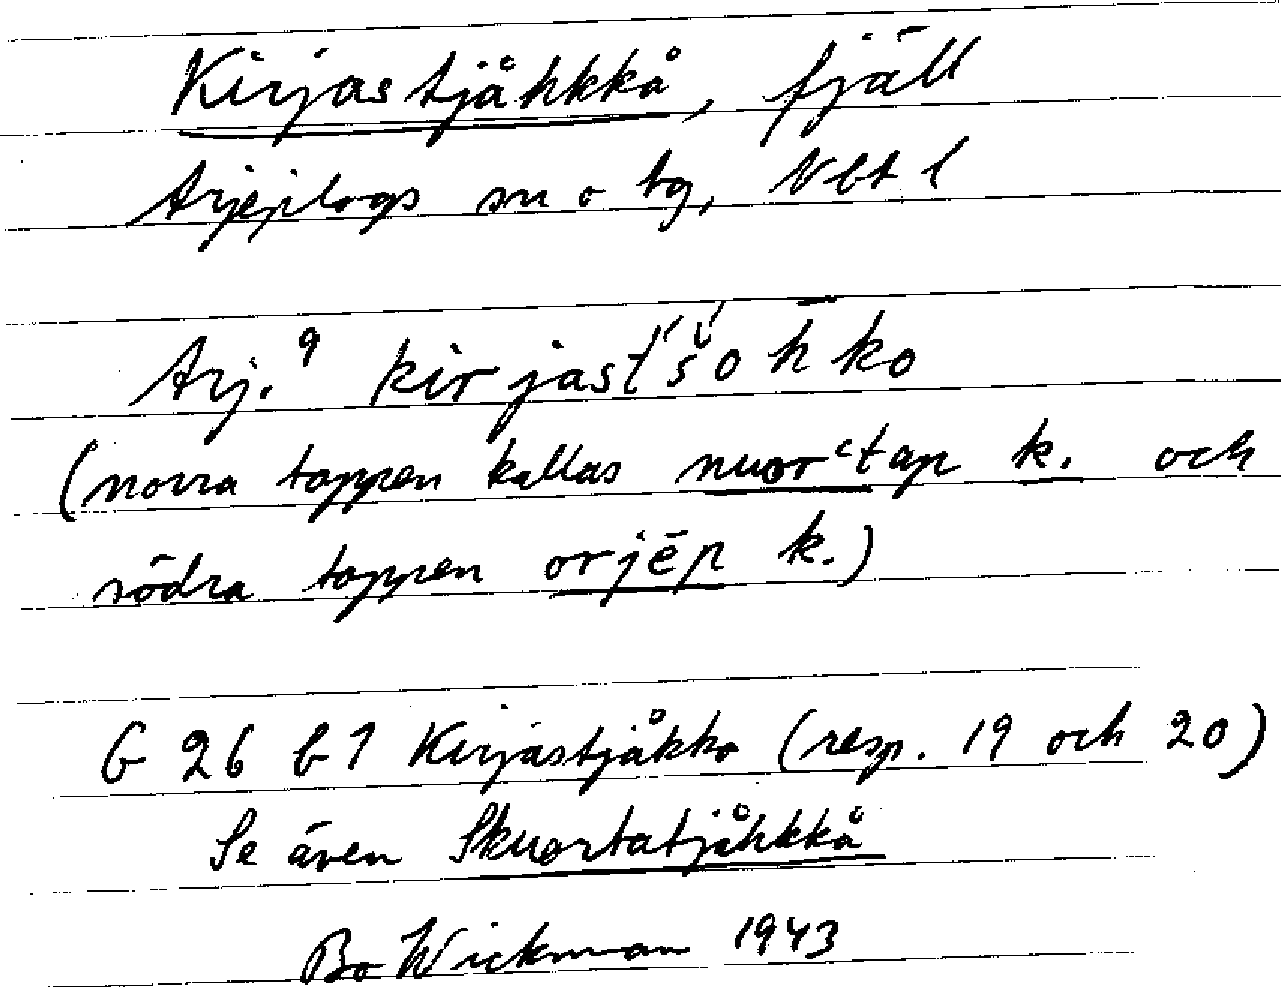 Kirjastjåhkkå, fjäll
Arjeplogs sn o tg, Nbt l
Arj. 9 kirjast́š́oh̄ko
(norra toppen kallas nuorʿtap k. och
södra toppen orjēp k.)
G 26 b 1 Kirjastjåkko (resp. 19 och 20)
Se även Skuortatjåhkkå
Bo Wickman 1943